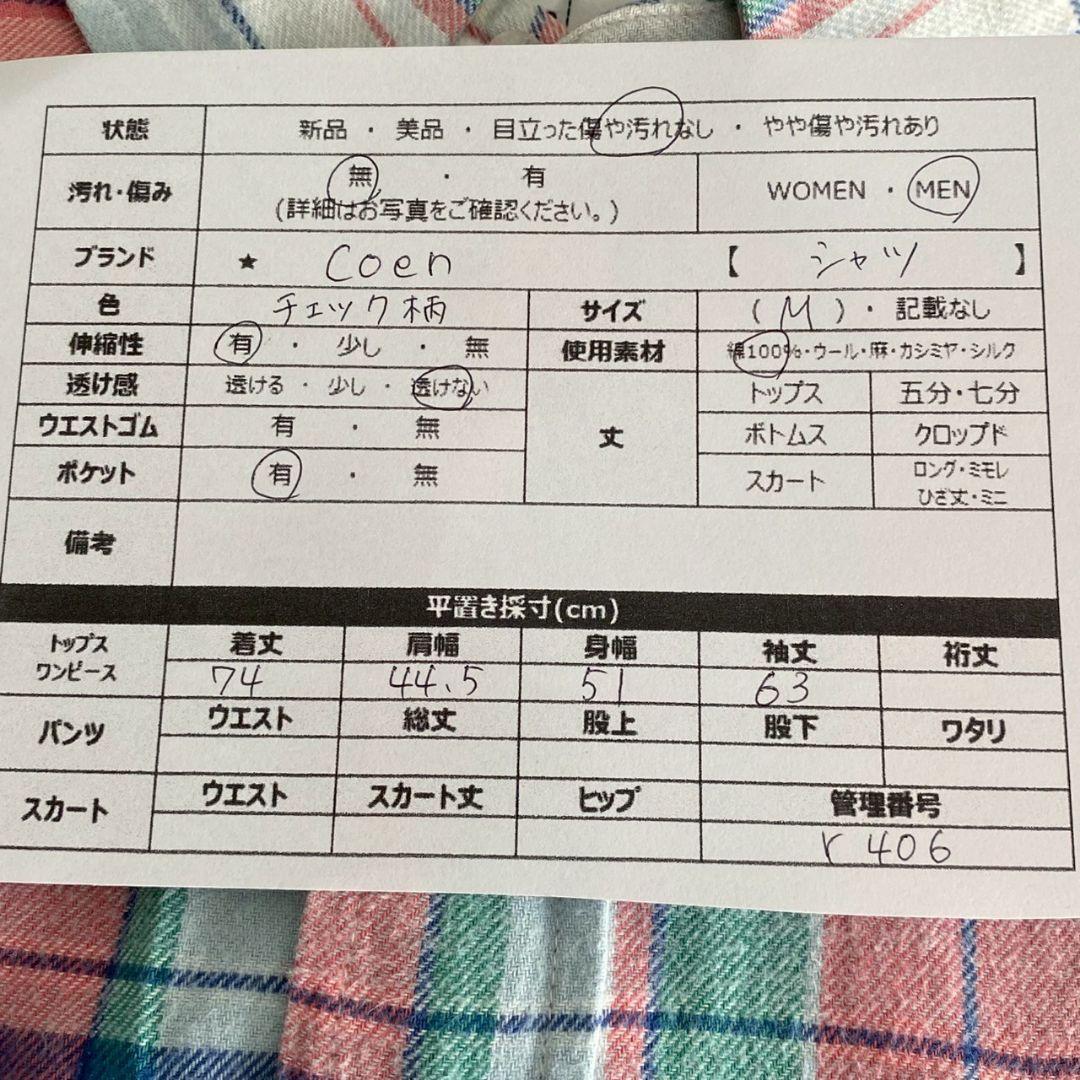 状態 新品 ・ 美品 ・ 目立った傷や汚れなし ・ やや傷や汚れあり
汚れ・傷み 無 ・ 有 WOMEN ・ MEN
(詳細はお写真をご確認ください。)
ブランド ★ Coen 【 シャツ 】
色 チェック柄 サイズ ( M ) ・ 記載なし
伸縮性 有 ・ 少し ・ 無 使用素材 綿100%・ウール・麻・カシミヤ・シルク
透け感 透ける ・ 少し ・ 透けない 丈 トップス 五分・七分
ウエストゴム 有 ・ 無 ボトムス クロップド
ポケット 有 ・ 無 スカート ロング・ミモレ
ひざ丈・ミニ
備考
平置き採寸(cm)
トップス 着丈 肩幅 身幅 袖丈 裄丈
ワンピース 74 44.5 51 63
パンツ ウエスト 総丈 股上 股下 ワタリ
スカート ウエスト スカート丈 ヒップ 管理番号
r 406